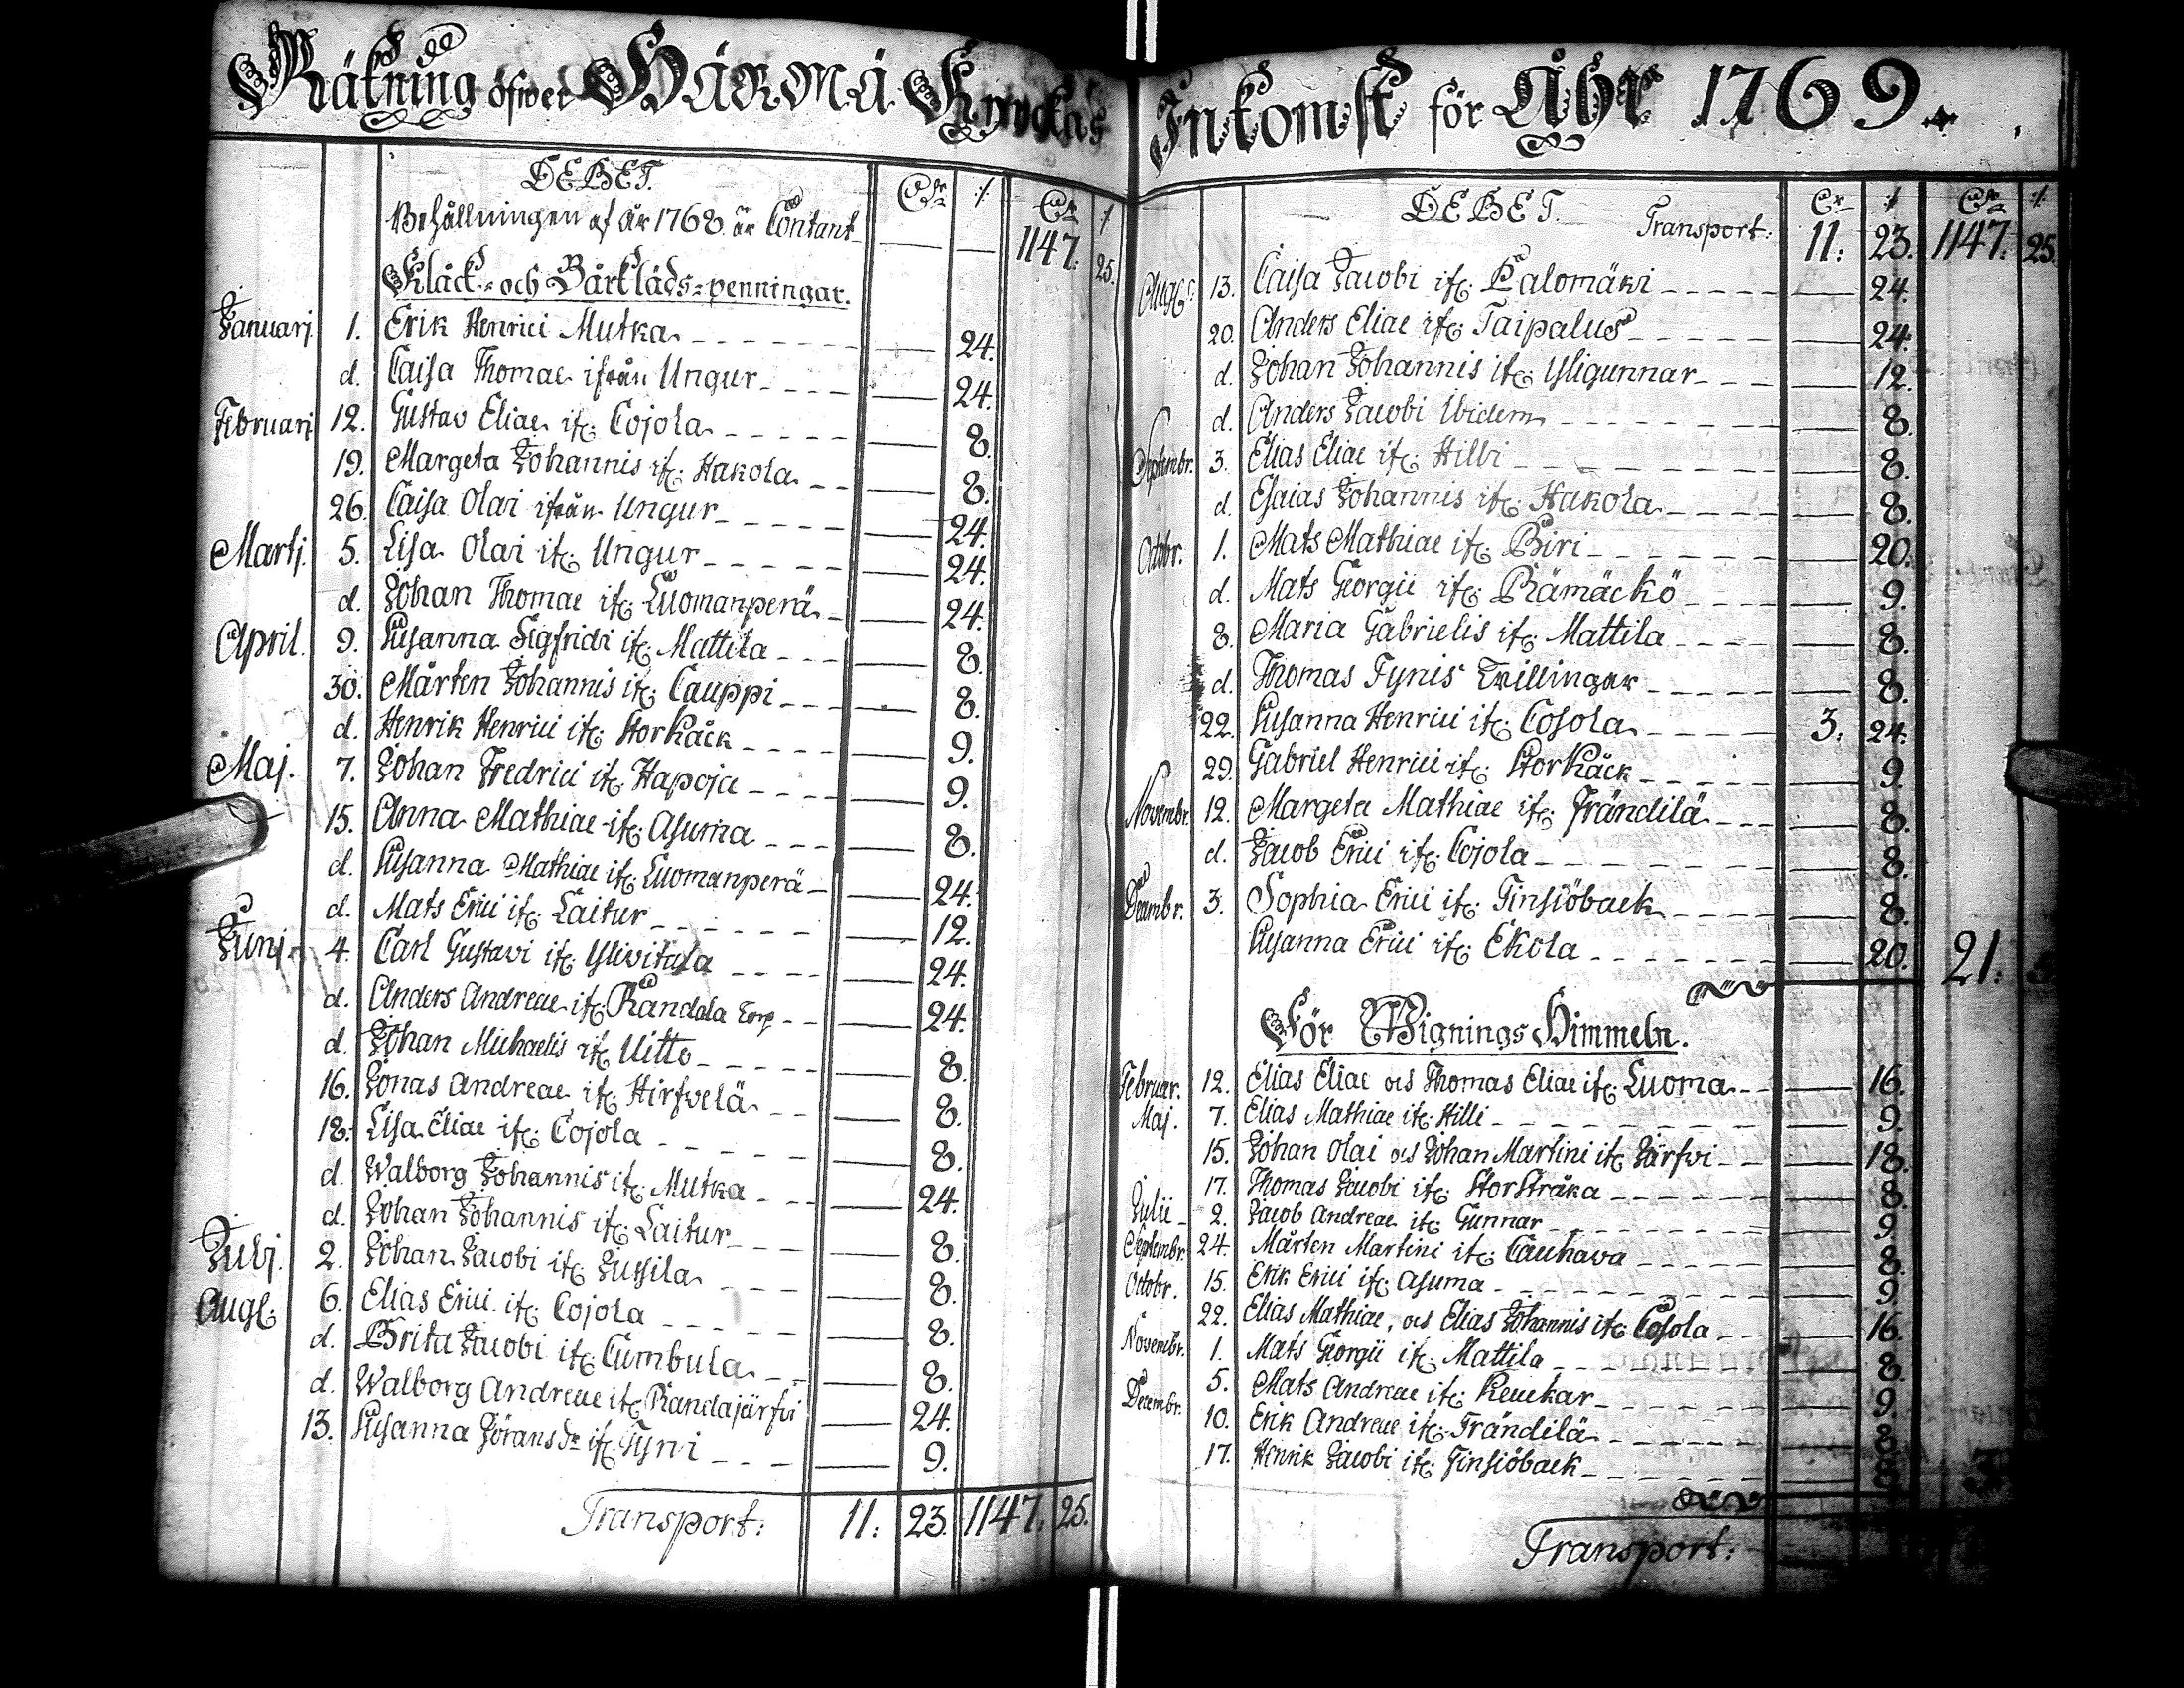 Räkning öfwer HÄRMÄ Kyrckas
DEBET.
Behållningen af År 1768 är Contant 1147. 25.
Klåck- och Bårklädspenningar.
Januarj. 1. Erik Henrici Mutka 24.
d. Caisa Thomae ifrån Ungur 24.
Februarj 12. Gustav Eliae if: Cojola 8.
19. Margeta Johannis if: Hakola 8.
26. Caisa Olai ifrån Ungur 24.
Martj. 5. Lisa Olai if: Ungur 24.
d. Johan Thomae if: Luomanperä 24.
April. 9. Susanna Sigfridi if: Mattila 8.
30. Mårten Johannis if: Cauppi 8.
d. Henrik Henrici if: StorKåck 9.
Maj. 7. Johan Fredrici if: Hapoja 9.
15. Anna Mathiae if: Asuma 8.
d. Susanna Mathiae if: Luomanperä 24.
d. Mats Erici if: Laitur 12.
Junj. 4. Carl Gustavi if: Ylivitala 24.
d. Anders Andreae if: Randala Torp 24.
d. Johan Michaelis if: Uitto 8.
16. Jonas Andreae if: Hirfvelä 8.
18. Lisa Eliae if: Cojola 8.
d. Walborg Johannis if: Mutka 24.
d. Johan Johannis if: Laitur 8.
Julj. 2. Johan Jacobi if: Jussila 8.
Aug: 6. Elias Erici if: Cojola 8.
d. Brita Jacobi if: Cumbula 8.
d. Walborg Andreae if: Randajärfvi 24.
13. Susanna Jöransdr if: Tyni 9.
Transport: 11: 23. 1147. 25.
Inkomst för Åhr 1769.
DEBET. Transport: 11: 23. 1147. 25.
Aug: 13. Caisa Jacobi if: Palomäki 24.
20. Anders Eliae if: Taipalus 24.
d. Johan Johannis if: Yligunnar 12.
d. Anders Jacobi Ibidem 8.
Septembr. 3. Elias Eliae if: Hilbi 8.
d. Esaias Johannis if: Hakola 8.
Octobr. 1. Mats Mathiae if: Biri 20.
d. Mats Georgii if: Rämäckö 9.
8. Maria Gabrielis if: Mattila 8.
d. Thomas Tynis Tvillingar 8.
22. Susanna Henrici if: Cosola 3. 24.
29. Gabriel Henrici if: StorKåck 9.
Novembr. 12. Margeta Mathiae if: Frändilä 8.
d. Jacob Erici if: Cojola 8.
Decembr. 3. Sophia Erici if: Finsiöback 8.
Susanna Erici if: Ekola 20. 21:
För WigningsHimmeln.
Februar. 12. Elias Eliae och Thomas Eliae if: Luoma 16.
Maj. 7. Elias Mathiae if: Hilli 9.
15. Johan Olai och Johan Martini if: Järfvi 18.
17. Thomas Jacobi if: StorStråka 8.
Julii 2. Jacob Andreae if: Gunnar 9.
Septembr. 24. Mårten Martini if: Cauhava 8.
Octobr. 15. Erik Erici if: Asuma 9.
22. Elias Mathiae, och Elias Johannis if: Cosola 16.
Novembr. 1. Mats Georgii if: Mattila 8.
5. Mats Andreae if: Keuckar 9.
Decembr. 10. Erik Andreae if: Frändilä 8.
17. Henrik Jacobi if: Finsiöback 8.
Transport: